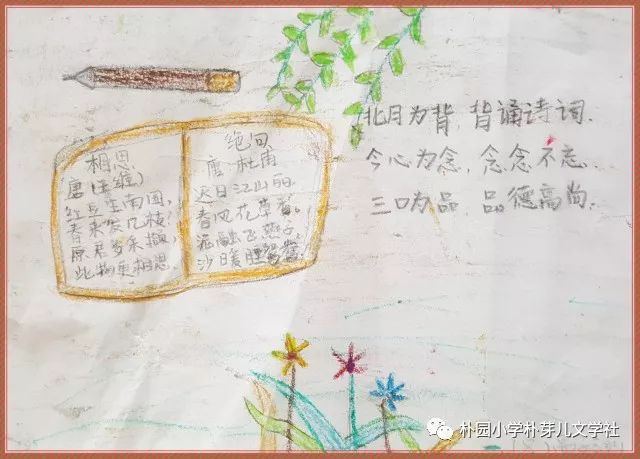 相思
唐(王维)
红豆生南国,
春来发几枝?
原君多采撷,
此物最相思.
绝句
唐 杜甫
迟日江山丽.
春风花草香。
泥融飞燕子,
沙日暖睡鸳鸯.
北月为背,背诵诗词.
今心为念,念念不忘.
三口为品,品德高尚.
朴园小学朴芽儿文学社